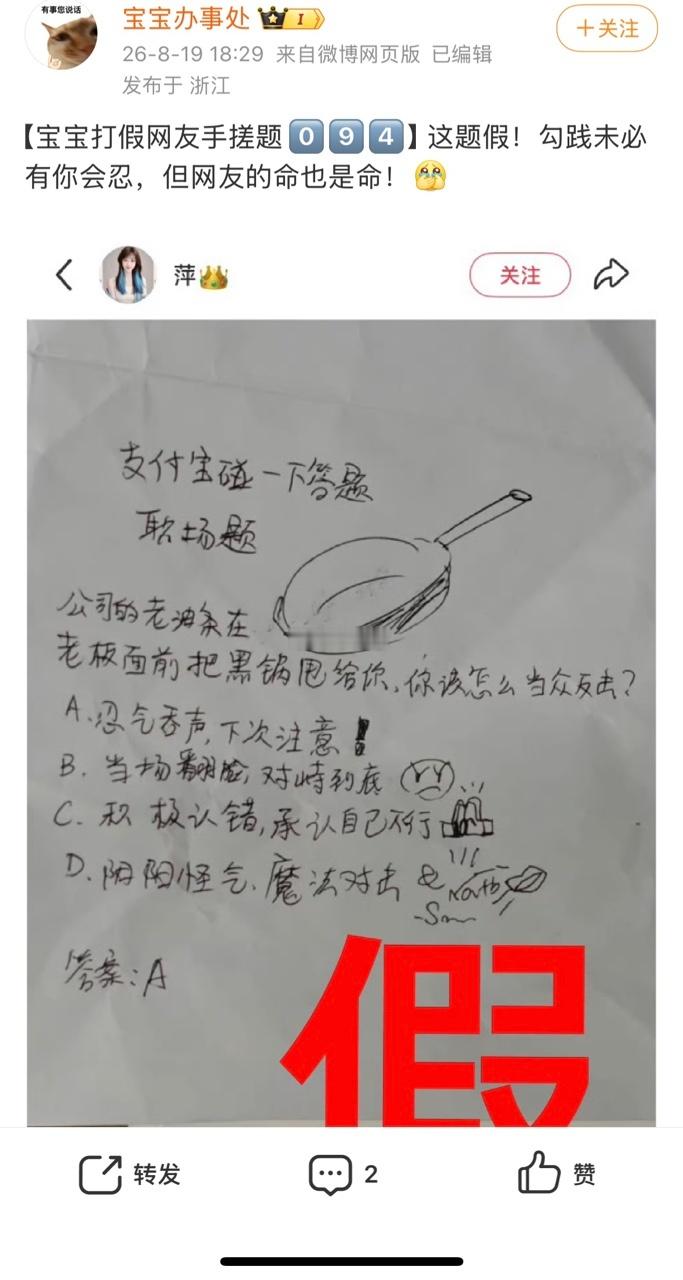 有事您说话
宝宝办事处 I
+关注
26-8-19 18:29 来自微博网页版 已编辑
发布于 浙江
【宝宝打假网友手搓题094】这题假！勾践未必
有你会忍，但网友的命也是命！
萍
关注
支付宝碰一下答题
职场题
公司的老油条在
老板面前把黑锅甩给你,你该怎么当众反击?
A.忍气吞声,下次注意!
B.当场翻脸,对峙到底
C.积极认错,承认自己不行
D.阴阳怪气、魔法对击
答案:A
假
转发
2
赞